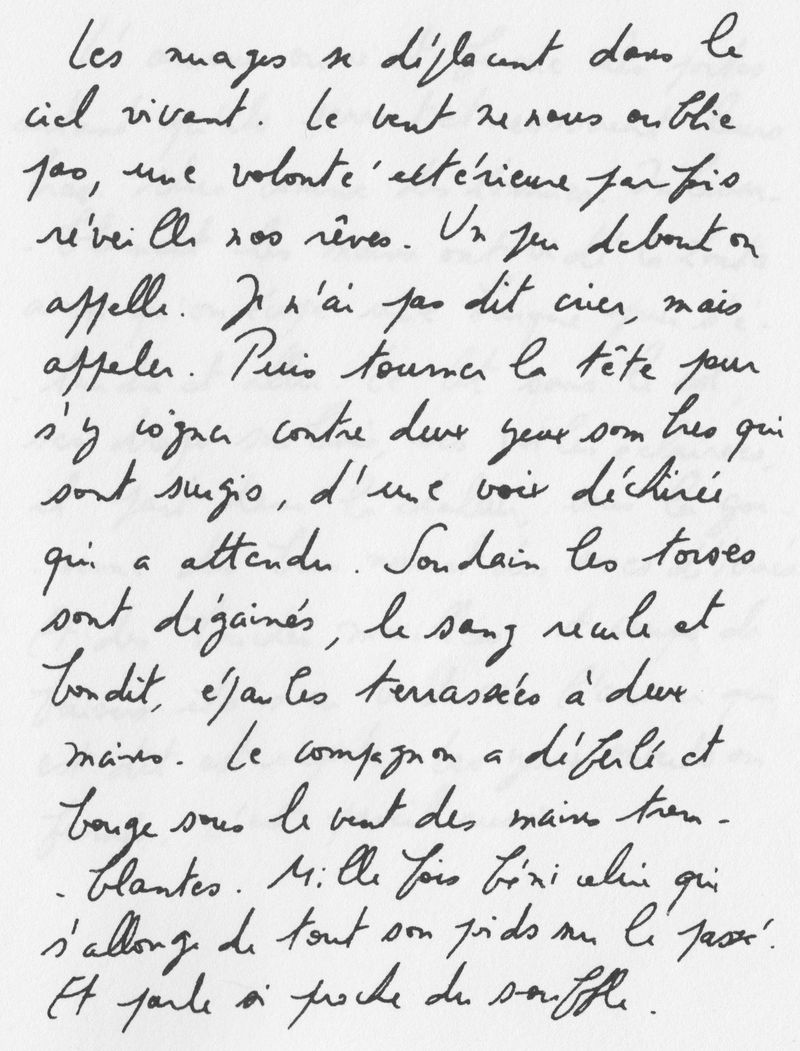 Les nuages se déplacent dans le
ciel vivant. Le vent ne nous oublie
pas, une volonté extérieure parfois
réveille nos rêves. Un peu debout on
appelle. Je n'ai pas dit crier, mais
appeler. Puis tourner la tête pour
s'y cogner contre deux yeux sombres qui
sont surgis, d'une voix déchirée
qui a attendu. Soudain les torses
sont dégainés, le sang recule et
bondit, épaules terrassées à deux
mains. Le compagnon a déferlé et
bouge sous le vent des mains trem-
-blantes. Mille fois béni celui qui
s'allonge de tout son poids sur le passé.
Et parle si proche du souffle.